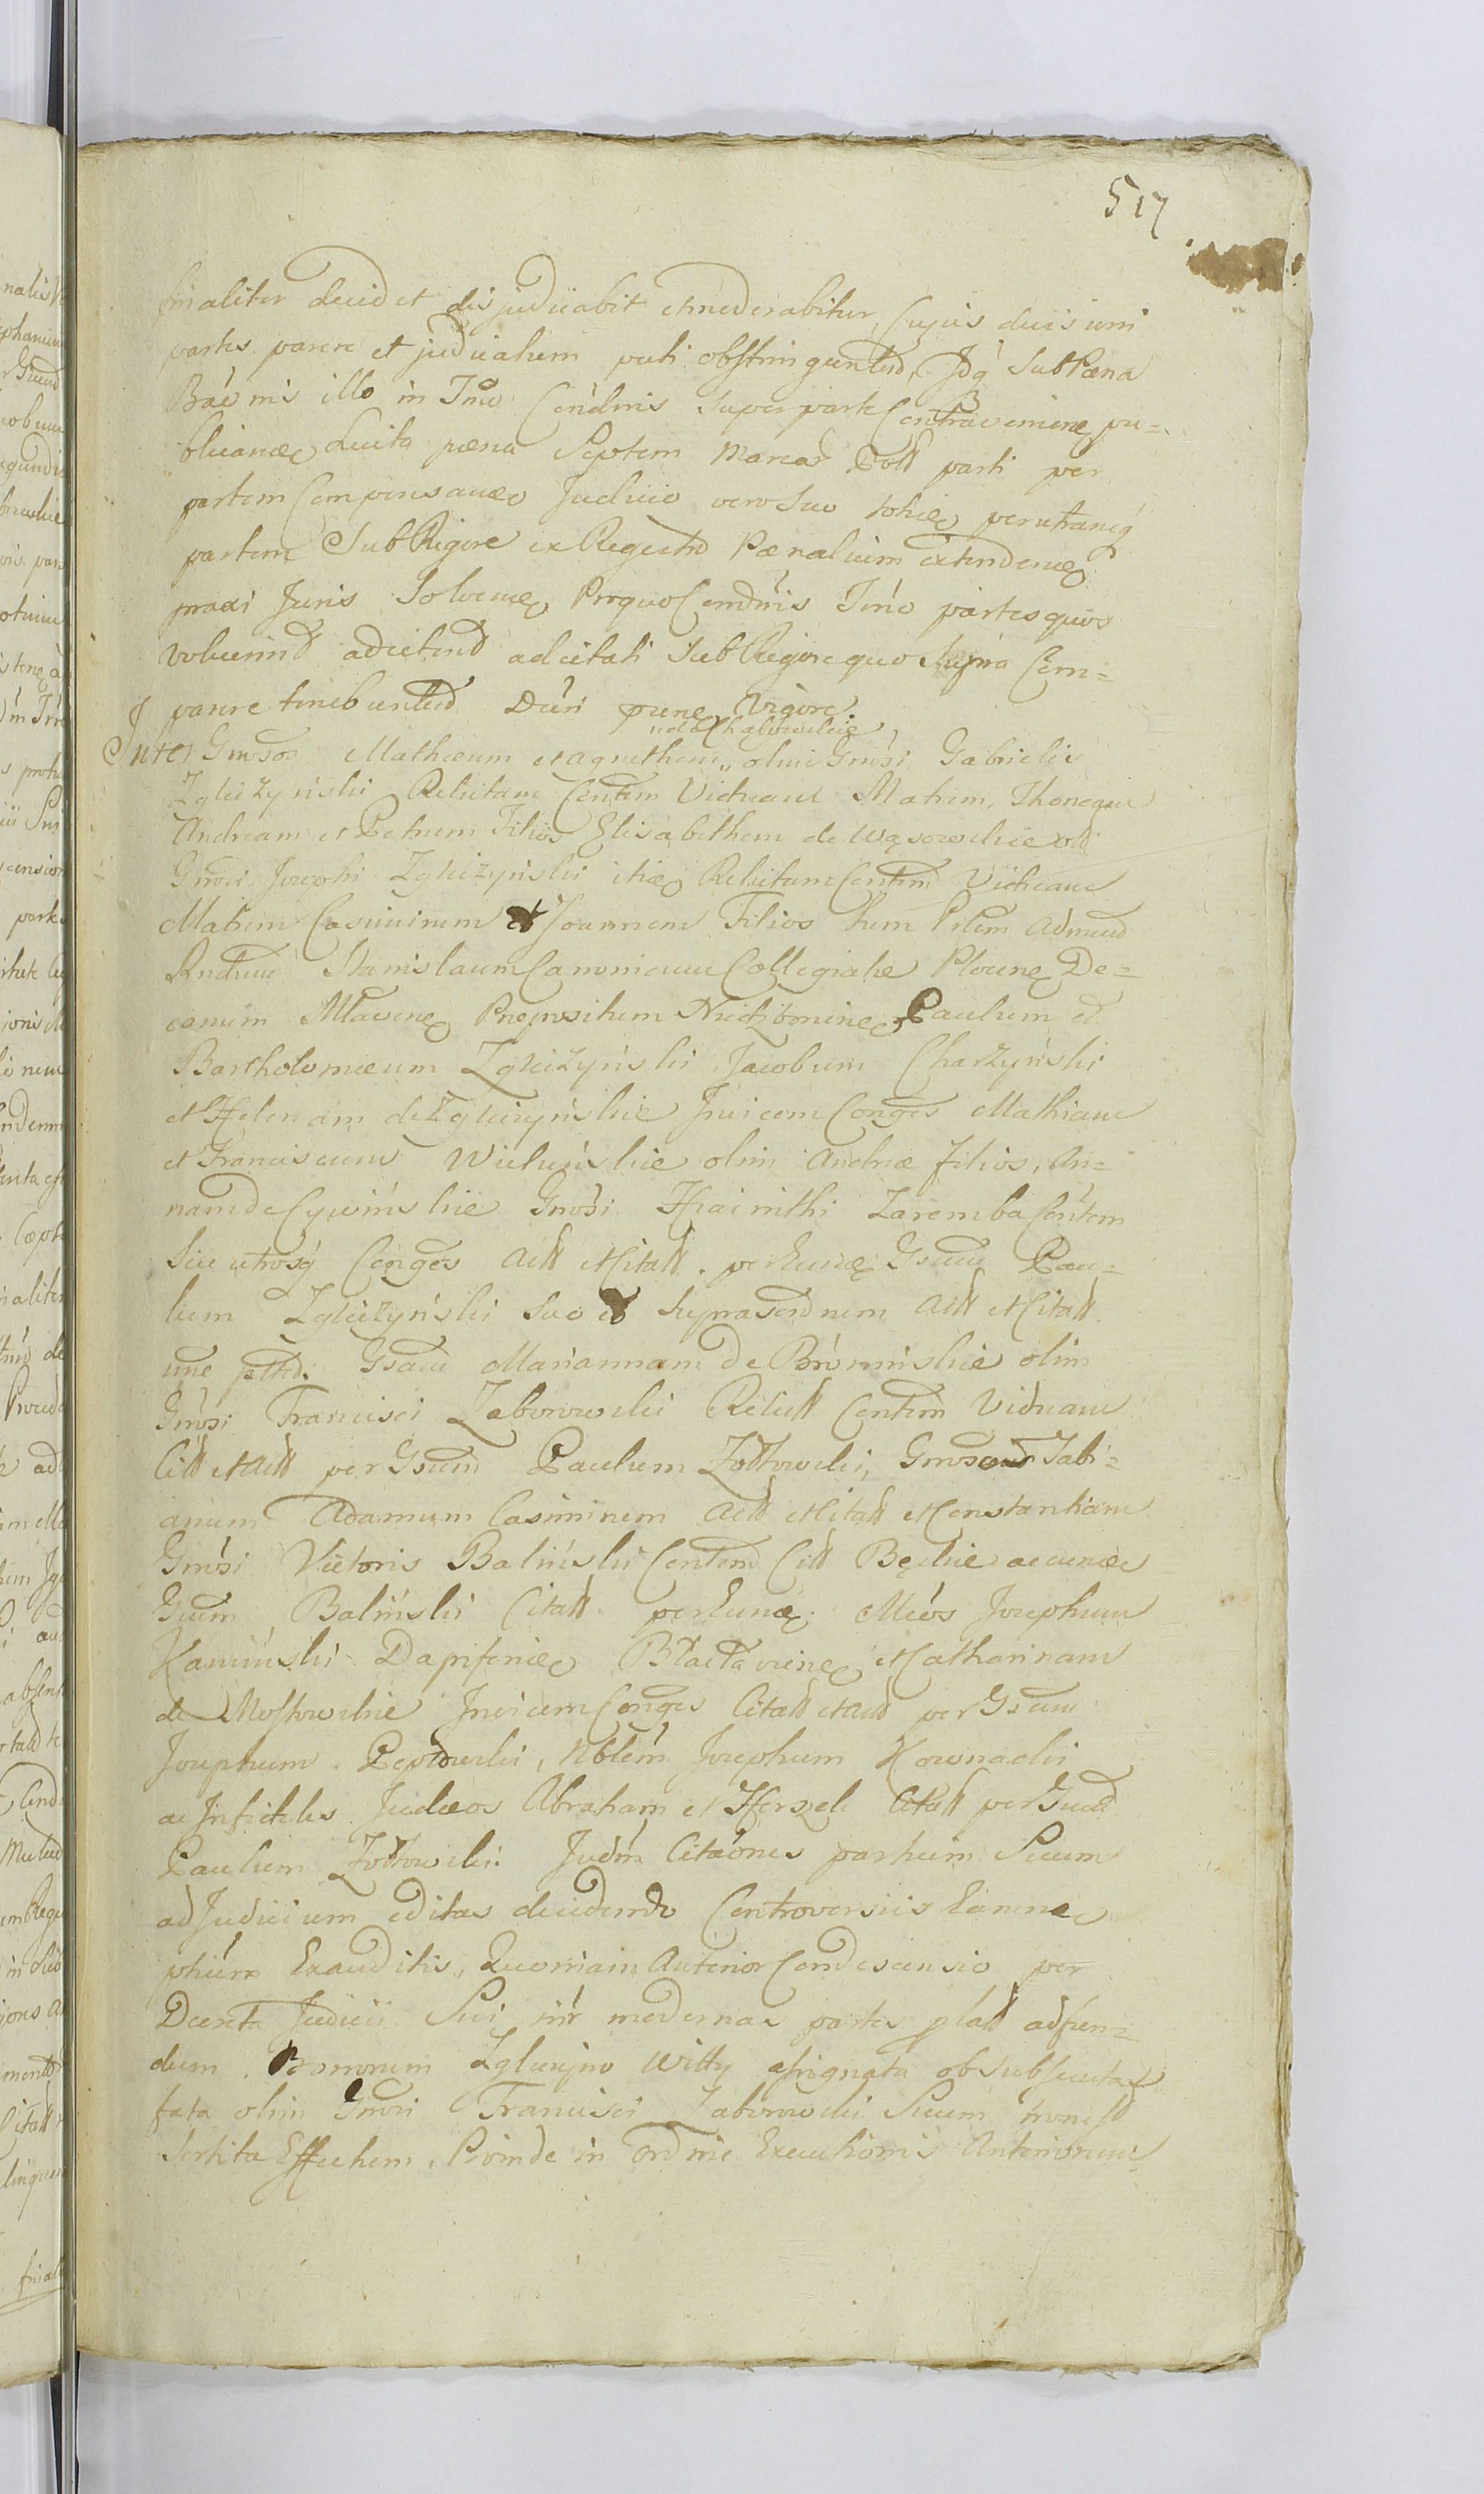 517
finaliter decidet disjudicabit et moderabitur, Cujus decisioni
partes parere et judicatum pati obstringentur, Idq sub Pæna
Banis illo in Tmo Condnis super parte Contraveniene pu=
blicanæ Luita pæna Septem Marcar Poll parti per
partem Compensanæ Judicio vero Suo tohiæ per utramq
partem Sub Rigore ex Regestro Pænalium extendenæ
praxi Juris Solvenæ, Pro quo Condnis Tmo partes quos
voluerint adcitent adcitati sub Rigore quo supra Com=
parere tenebuntur Dcti præne Vigore.
"de Chąbowskie
Inter Gnrsos Mathæum et Agnethem" olim Gnrsi Gabrielis
Zgliczyński Relictam Contem Viduam Matrem, Thomam
Andream et Petrum Filios Elisabetham de Wąsowskie olim
Gnrosi Josephi Zgliczyński itiæ Relictam Contem Viduam
Matrem Casimirum et Joannem Filios tum Prlem Admod
Rndum Stanislaum Canonicum Collegiatæ Plocenę De=
canum Mlavenę Præpositum Niedzbonienę Paulum et
Bartholomæum Zgliczyński Jacobum Charzyński
et Helenam de Zgliczyńskie Invicem Conges Mathiam
et Franciscum Wieluńskie olim Andreæ filios, An=
nam de Cywińskie Gnrosi Hyacinthi Zaremba Contem
Sui utrosq Conges Actt et Citatt. per Eunę Gsum Pau=
lum Zgliczyński suo et suprascrd nem Actt et Citatt.
une Gsam Mariannam de Bromińskie olim
Gnrosi Francisci Zaborowski Relictt Contem Viduam
Citt et Actt per Gsum Paulum Żółtowski, Gnrosum Fabi=
anum Adamum Casimirum Actt et Citatt et Constantiam
Gnrosi Victoris Baliński Contem Citt Bęskie ac eunæ
Gsum Baliński Citatt per Eunę. Mcos Josephum
Kamiński Dapiferiæ Bracłavienę et Catharinam
de Mostowskie Invicem Conges Citatt et Actt per Gsum
Josephum Pepłowski, Nblem Josephum Kownacki
ac Infideles Judæos Abraham et Herszek Citatt per Gsum
Paulum Żółtowski. Judm Citaones partium Suum
ad Judicium editas decidendo Controversiis Earune
phiurx Exauditis, Quoniam Anterior Condescensio per
Decreta Judicii Sui inr modernas partes ad fun=
dum Bonorum Zgliczyno Witty assignata ob subsecuta
fata olim Gnrosi Francisci Zaborowski Suum non est
Sortita Effectum, Proinde in ordine Executionis Anteriorum